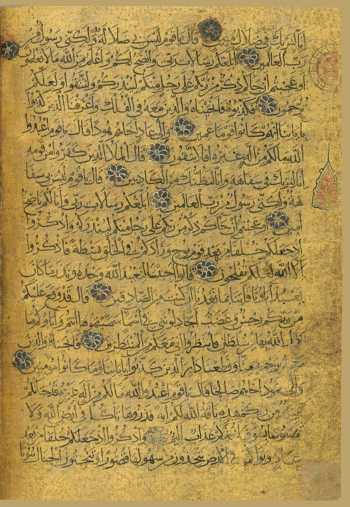 انا لنراك في ضلال مبين قال يا قوم ليس بي ضلالة ولكني رسول من
رب العالمين ابلغكم رسالات ربي وانصح لكم واعلم من الله ما لا تعلمون
اوعجبتم ان جاءكم ذكر من ربكم على رجل منكم لينذركم ولتتقوا ولعلكم
ترحمون فكذبوه فانجيناه والذين معه في الفلك واغرقنا الذين كذبوا
باياتنا انهم كانوا قوما عمين والى عاد اخاهم هودا قال يا قوم اعبدوا
الله ما لكم من اله غيره افلا تتقون قال الملا الذين كفروا من قومه
انا لنراك في سفاهة وانا لنظنك من الكاذبين قال يا قوم ليس بي سفاهة
ولكني رسول من رب العالمين ابلغكم رسالات ربي وانا لكم ناصح
امين اوعجبتم ان جاءكم ذكر من ربكم على رجل منكم لينذركم واذكروا
اذ جعلكم خلفاء من بعد قوم نوح وزادكم في الخلق بسطة فاذكروا
الاء الله لعلكم تفلحون قالوا اجئتنا لنعبد الله وحده ونذر ما كان
يعبد اباؤنا فاتنا بما تعدنا ان كنت من الصادقين قال قد وقع عليكم
من ربكم رجس وغضب اتجادلونني في اسماء سميتموها انتم واباؤكم ما
نزل الله بها من سلطان فانتظروا اني معكم من المنتظرين فانجيناه والذين
معه برحمة منا وقطعنا دابر الذين كذبوا باياتنا وما كانوا مؤمنين
والى ثمود اخاهم صالحا قال يا قوم اعبدوا الله ما لكم من اله غيره قد جاءتكم
بينة من ربكم هذه ناقة الله لكم اية فذروها تاكل في ارض الله ولا
تمسوها بسوء فياخذكم عذاب اليم واذكروا اذ جعلكم خلفاء من بعد
عاد وبواكم في الارض تتخذون من سهولها قصورا وتنحتون الجبال بيوتا